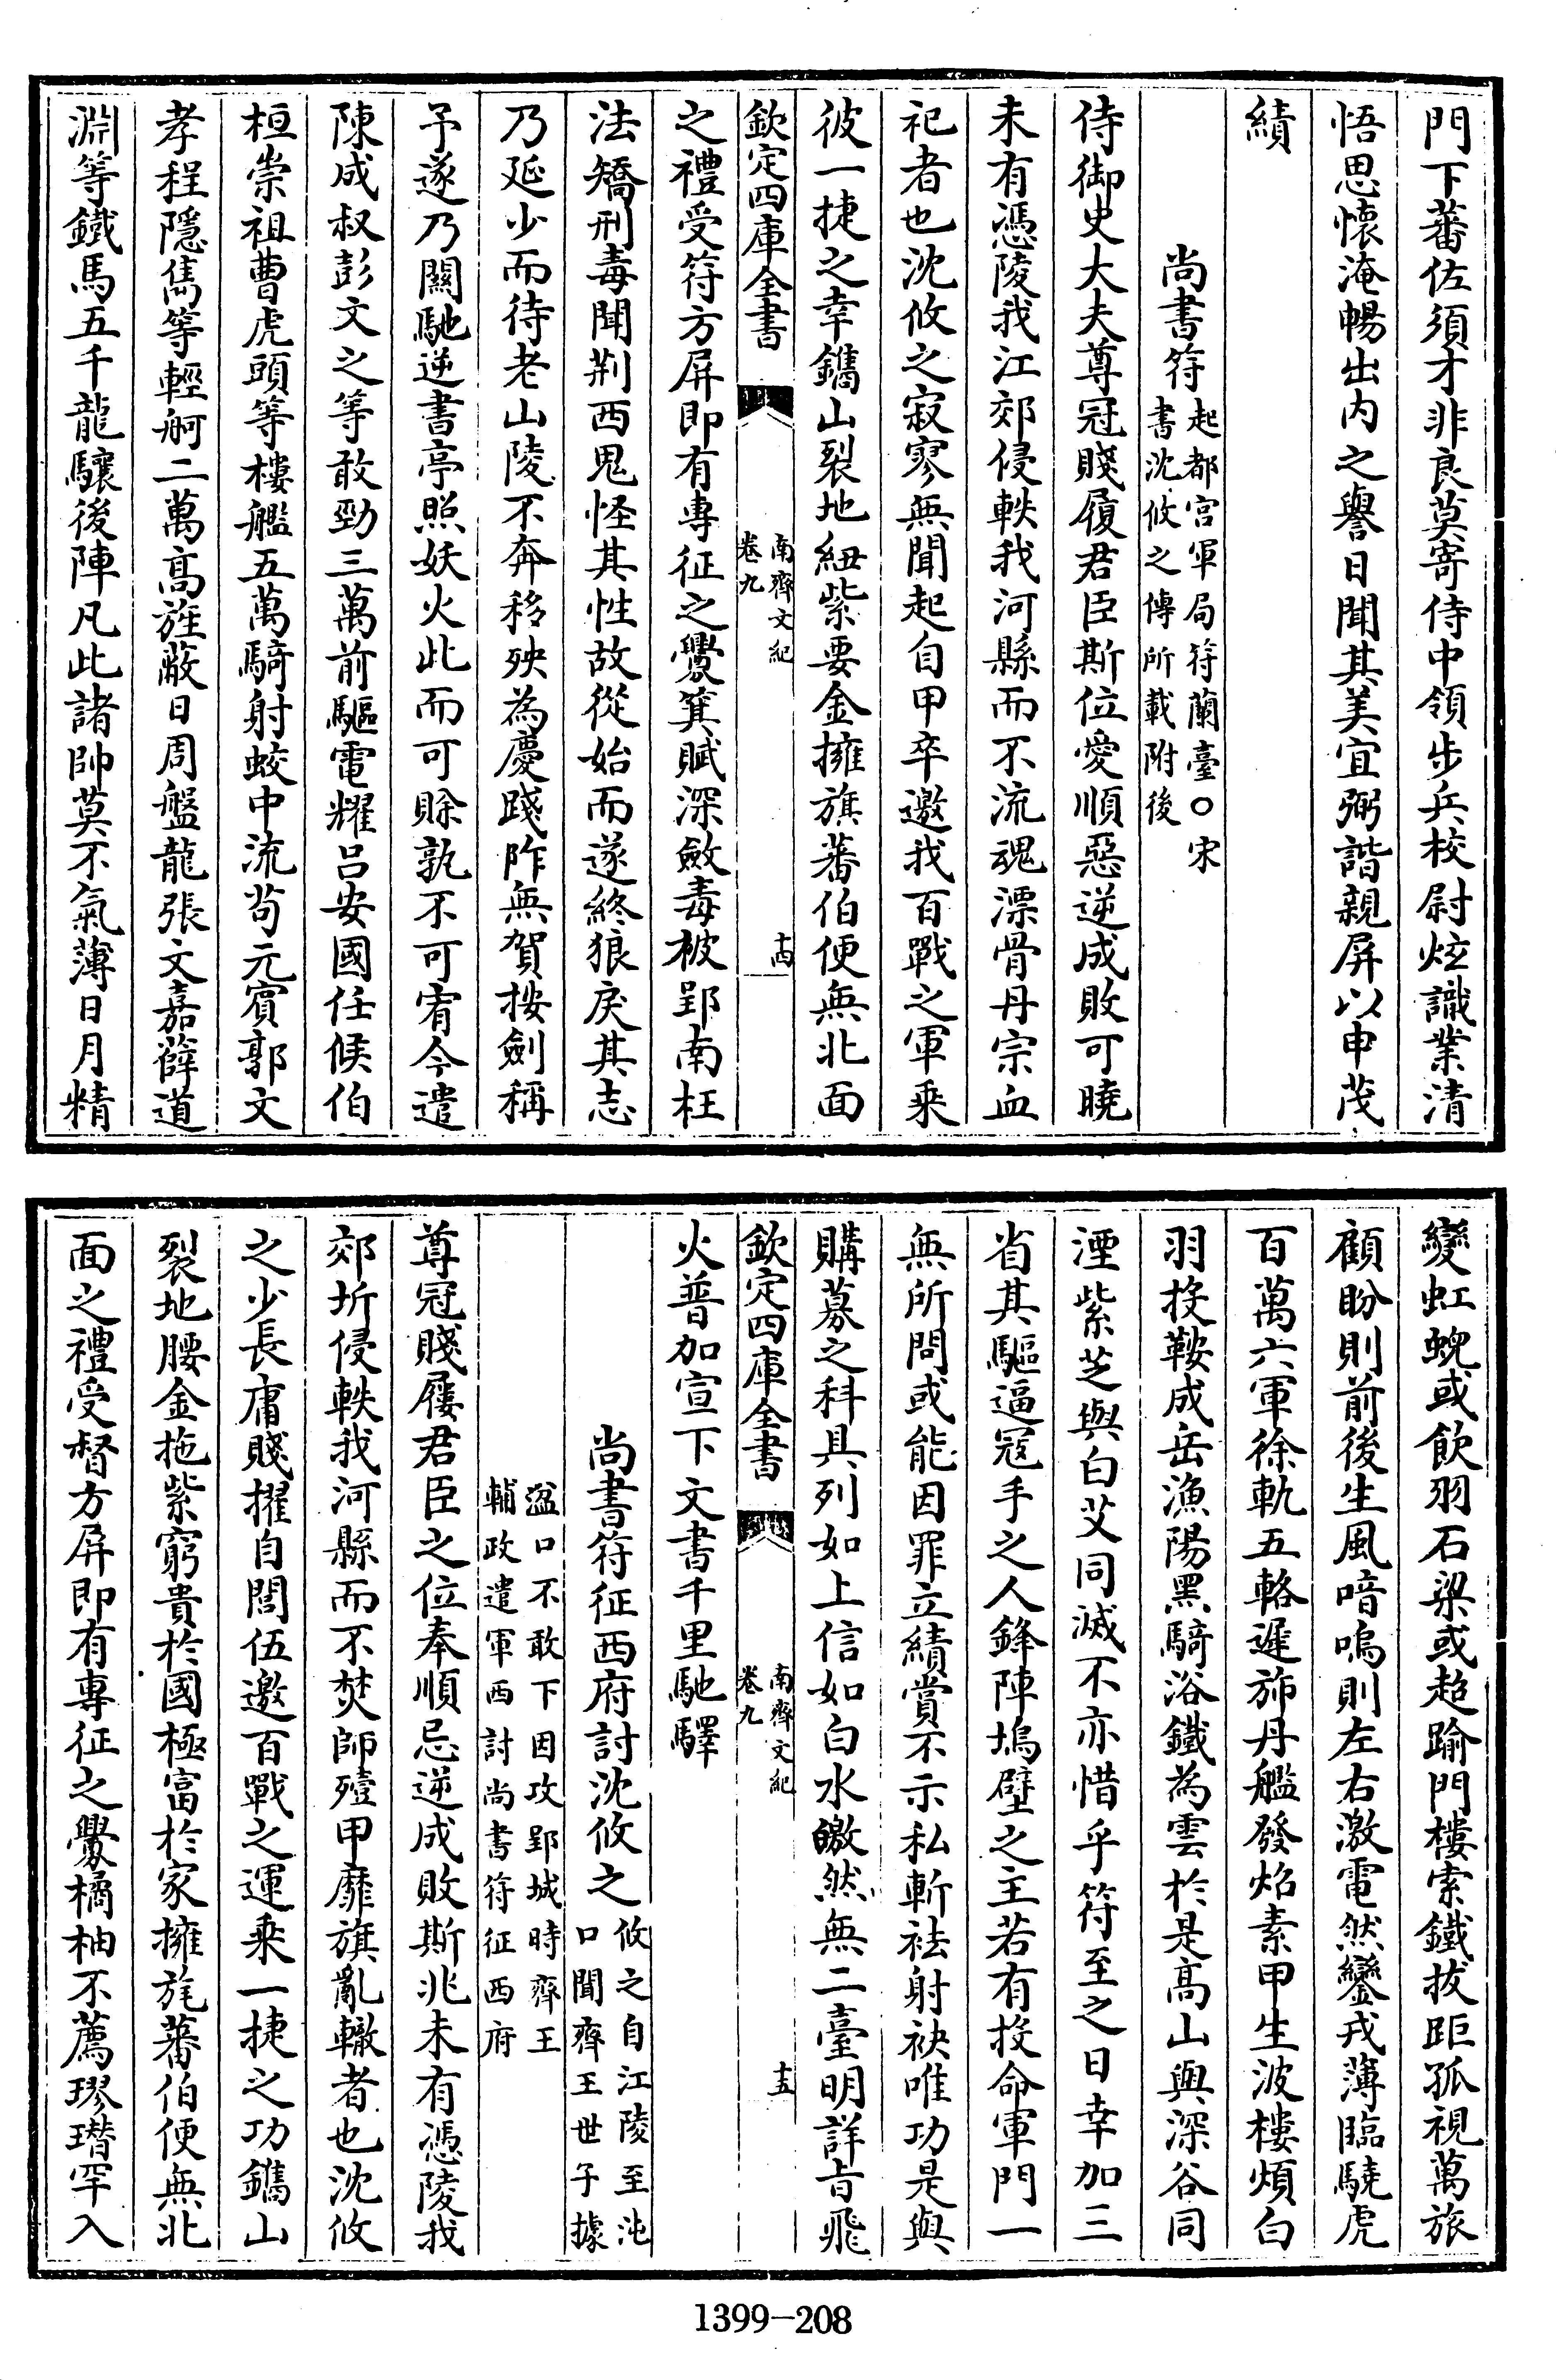 門下蕃佐須才非良莫寄侍中領步兵校尉炫識業清
悟思懷淹暢出内之譽日聞其美宜弼諧親屏以申茂
績
尚書符起都官軍局符蘭臺○宋
書沈攸之傳所載附後
侍御史大夫尊冠賤履君臣斯位愛順惡逆成敗可曉
未有憑陵我江郊侵軼我河縣而不流魂漂骨丹宗血
祀者也沈攸之寂寥無聞起自甲卒邀我百戰之軍乘
彼一捷之幸鐫山裂地紐紫要金擁旗蕃伯便無北面
欽定四庫全書
南齊文紀
卷九
十四
之禮受符方屏即有專征之釁箕賦深斂毒被郢南枉
法矯刑毒聞荆西鬼怪其性故從始而遂終狼戾其志
乃延少而待老山陵不奔移殃為慶踐阼無賀按劍稱
予遂乃關馳逆書亭照妖火此而可賒孰不可宥今遣
陳成叔彭文之等敢勁三萬前驅電耀吕安國任候伯
桓崇祖曹虎頭等樓艦五萬騎射蛟中流苟元賓郭文
孝程隱雋等輕舸二萬高旌蔽日周盤龍張文嘉薛道
淵等鐵馬五千龍驤後陣凡此諸帥莫不氣薄日月精
變虹蜺或飲羽石梁或超踰門樓索鐵拔距孤視萬旅
顧盼則前後生風喑嗚則左右激電然鑾戎薄臨驍虎
百萬六軍徐軌五輅遲斾丹艦發焰素甲生波樓煩白
羽投鞍成岳漁陽黑騎浴鐵為雲於是高山與深谷同
湮紫芝與白艾同滅不亦惜乎符至之日幸加三
省其驅逼寇手之人鋒陣塢壁之主若有投命軍門一
無所問或能因罪立績賞不示私斬袪射袂唯功是與
購募之科具列如上信如白水皦然無二臺明詳旨飛
欽定四庫全書
南齊文紀
卷九
十五
火普加宣下文書千里馳驛
尚書符征西府討沈攸之攸之自江陵至沌
口聞齊王世子據
湓口不敢下因攻郢城時齊王
輔政遣軍西討尚書符征西府
尊冠賤屨君臣之位奉順忌逆成敗斯兆未有憑陵我
郊圻侵軼我河縣而不焚師殪甲靡旗亂轍者也沈攸
之少長庸賤擢自閭伍邀百戰之運乘一捷之功鐫山
裂地腰金拖紫窮貴於國極富於家擁旄蕃伯便無北
面之禮受督方屏即有專征之釁橘柚不薦璆瑨罕入
1399-208